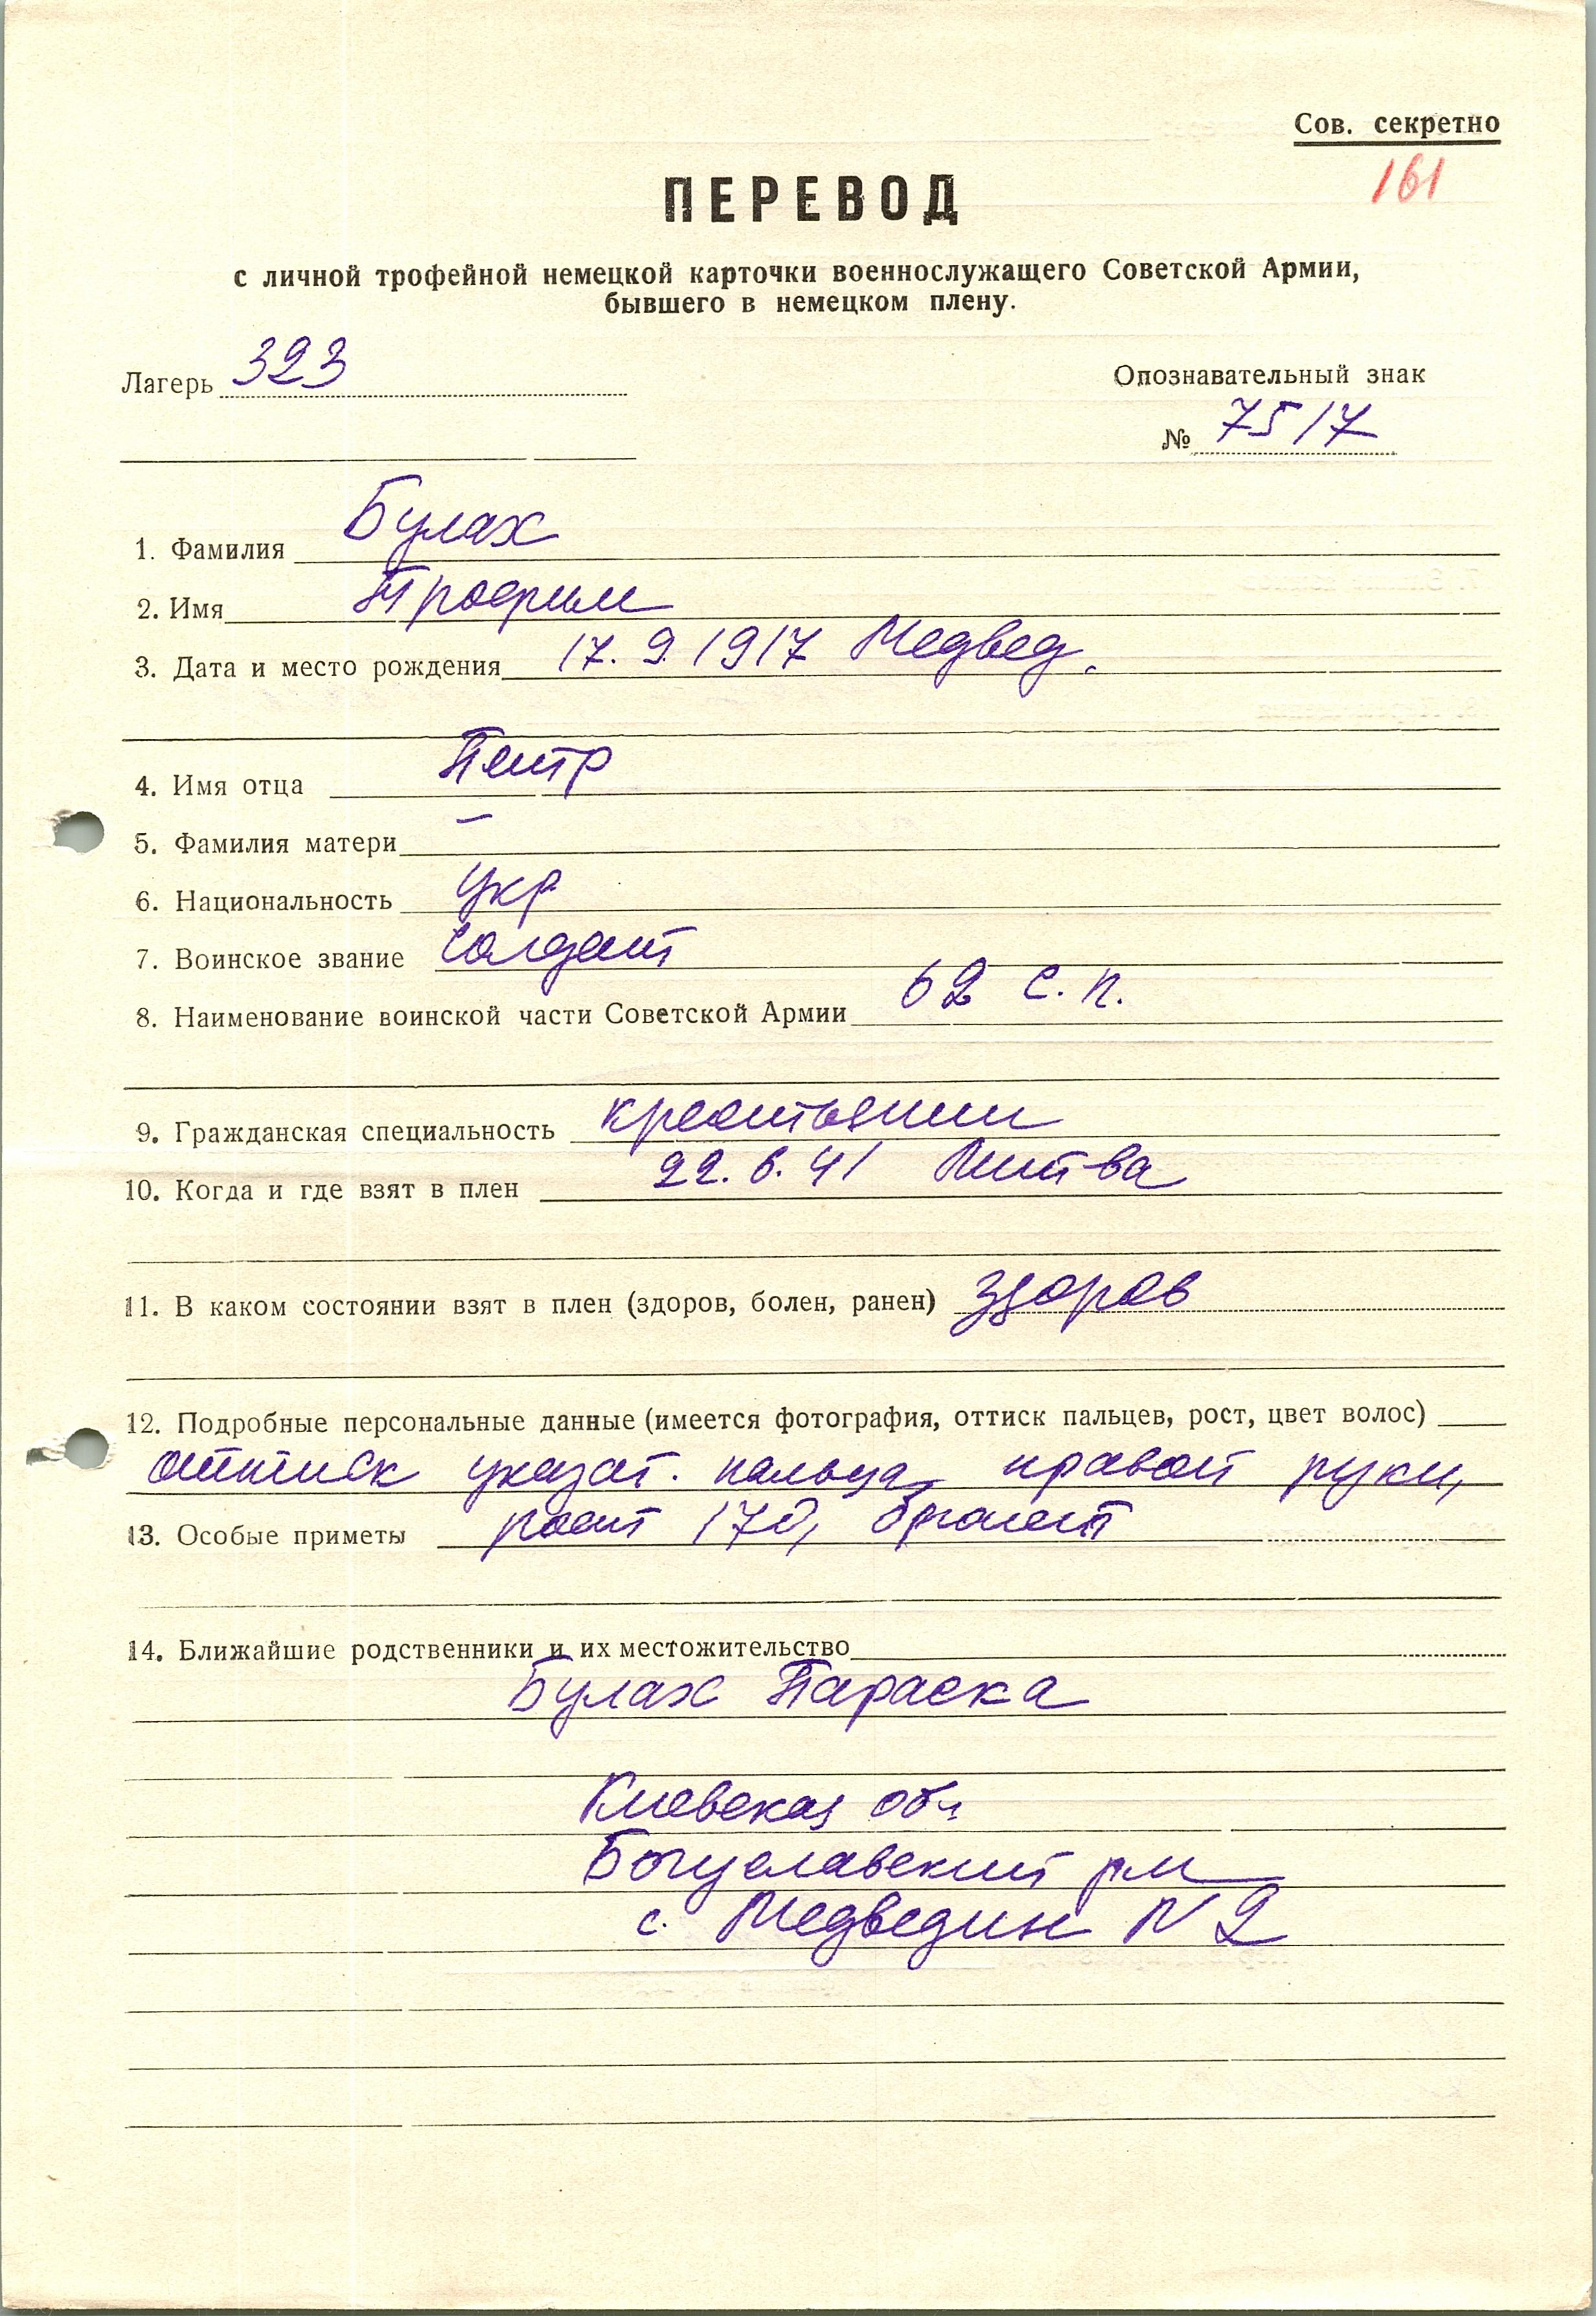 Сов. секретно
161
ПЕРЕВОД
с личной трофейной немецкой карточки военнослужащего Советской Армии,
бывшего в немецком плену.
Лагерь 323
Опознавательный знак
№ 7517
1. Фамилия Булах
2. Имя Трофим
3. Дата и место рождения 17.9.1917 Медвед.
4. Имя отца Петр
5. Фамилия матери –
6. Национальность укр
7. Воинское звание солдат
8. Наименование воинской части Советской Армии 62 с.п.
9. Гражданская специальность крестьянин
10. Когда и где взят в плен 22.6.41 Литва
11. В каком состоянии взят в плен (здоров, болен, ранен) здоров
12. Подробные персональные данные (имеется фотография, оттиск пальцев, рост, цвет волос)
оттиск указат. пальца правой руки,
13. Особые приметы рост 170, брюнет
14. Ближайшие родственники и их местожительство
Булах Параска
Киевская обл.
Богуславский р-н
с. Медведин N 2